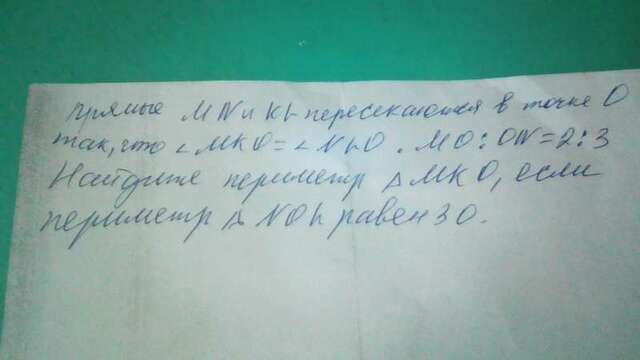 прямые MN и KL пересекаются в точке O
так, что ∠MKO=∠NLO. MO:ON=2:3
Найдите периметр △MKO, если
периметр △NOL равен 30.